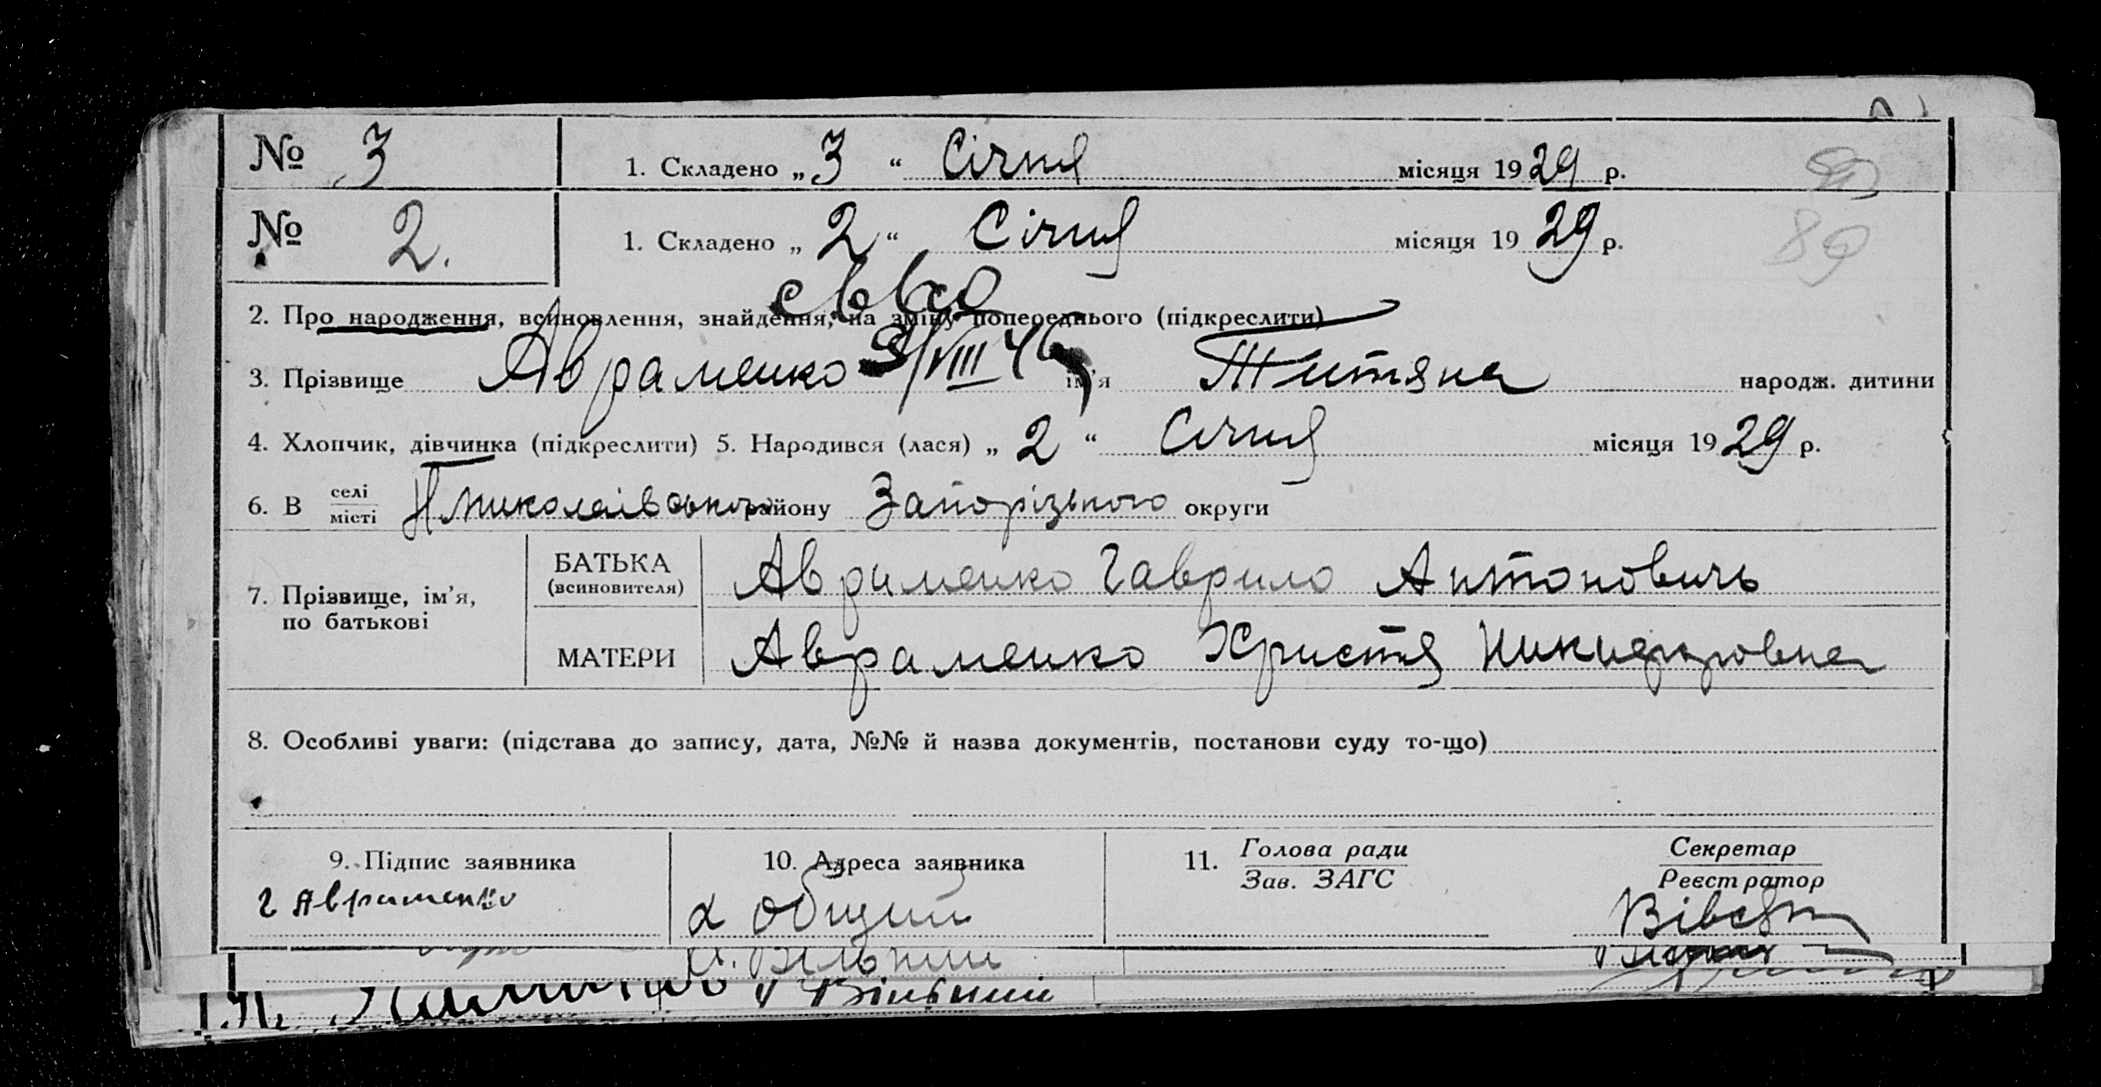 № 3 1. Складено „3“ Січня місяця 1929 р.
№ 2. 1. Складено „2“ Січня місяця 1929 р.
89
2. Про народження, всиновлення, знайдення, на зміну попереднього (підкреслити)
3. Прізвище Авраменко 9/VIII 46 ім'я Титяна народж. дитини
4. Хлопчик, дівчинка (підкреслити) 5. Народився (лася) „2“ Січня місяця 1929 р.
6. В селі
місті Н миколаівського району Запорізького округи
7. Прізвище, ім'я,
по батькові
БАТЬКА
(всиновителя) Авраменко Гаврило Антоновичь
МАТЕРИ Авраменко Христя
8. Особливі уваги: (підстава до запису, дата, №№ й назва документів, постанови суду то-що)
9. Підпис заявника
Г Авраменко
10. Адреса заявника
х общий
11. Голова ради
Зав. ЗАГС
Секретар
Реєстратор
х. Вільний
х Вільний